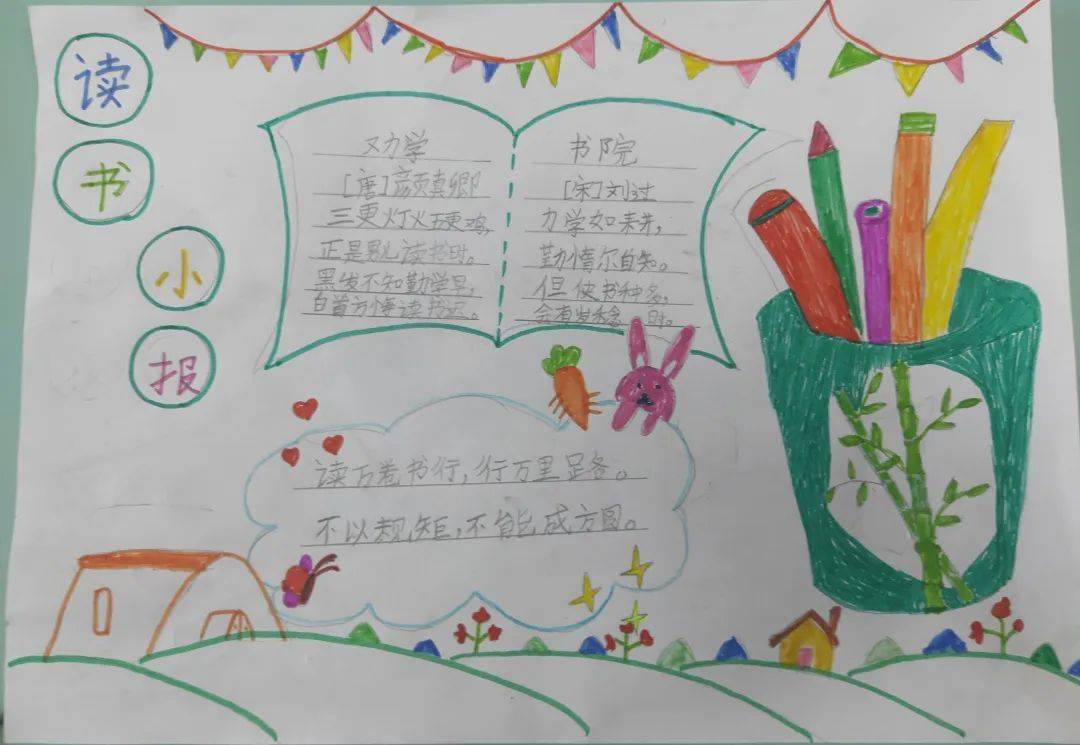 读
书
小
报
劝学
[唐]颜真卿
三更灯火五更鸡,
正是男儿读书时。
黑发不知勤学早,
白首方悔读书迟。
书院
[宋]刘过
力学如
勤惰尔自知。
但使书种多,
会有岁稔时。
读万卷书行,行万里路。
不以规矩,不能成方圆。